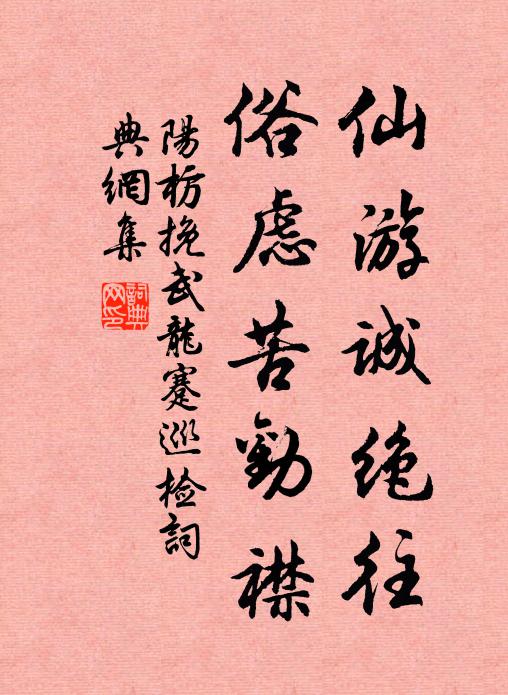 仙游诚绝往
俗虑苦劝襟
陽枋挽武龍蹇巡检詞
典網集
詞典網印